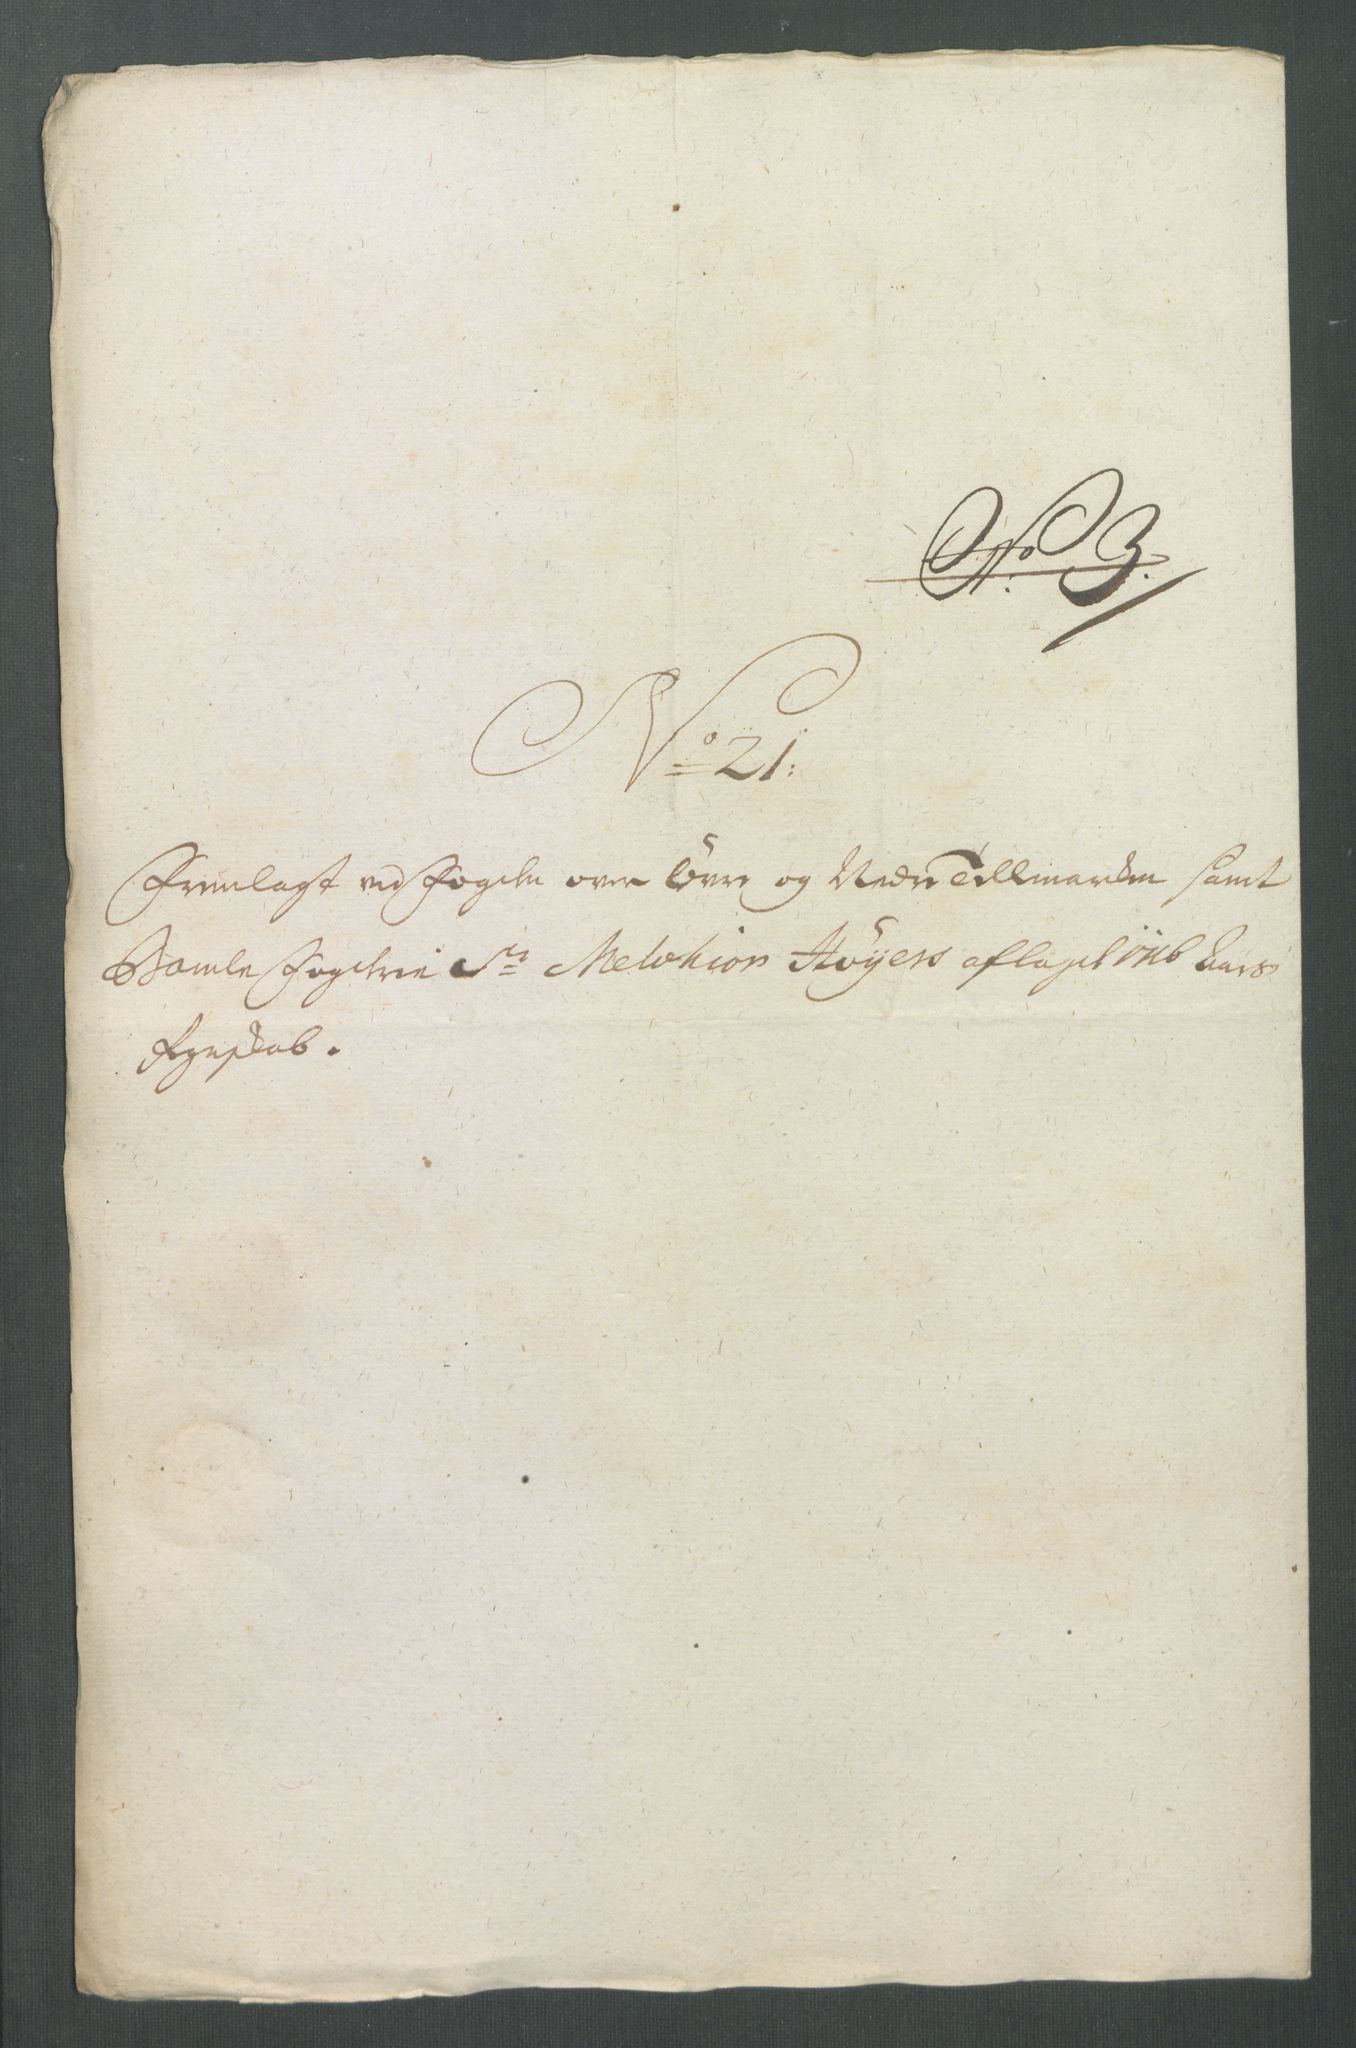 No. 3.
No 21:
Fremlagt ved Fogden over Öwre og Nedre Tellemarken samt
Bamle Fogderie Sr. Melchior Höyers aflagde 1716 Aars
Regnskab.